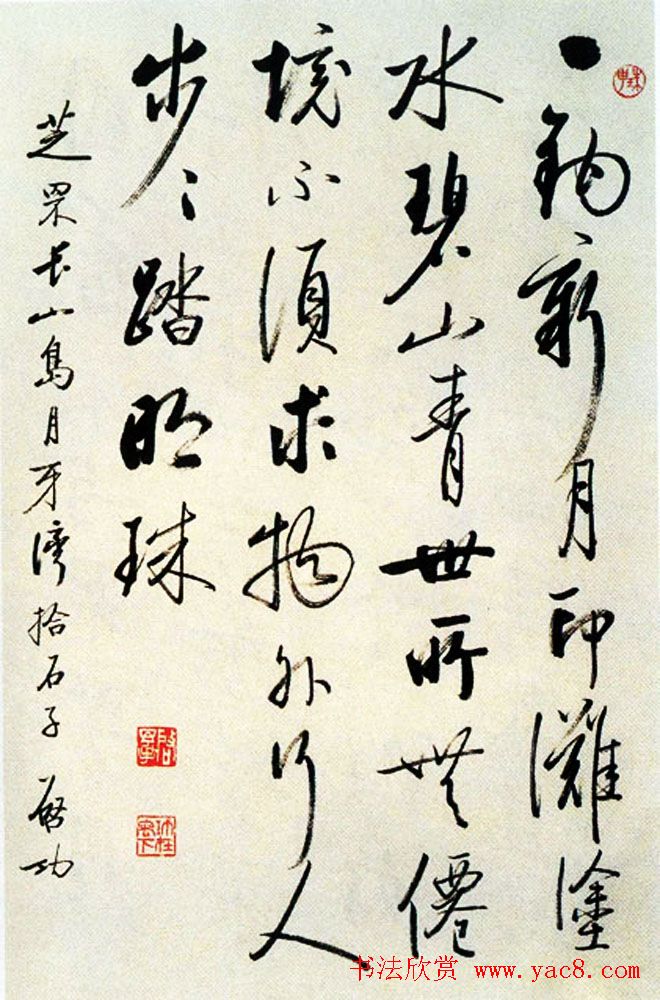 一鈎新月印灘塗
水碧山青世所無僊
境不須求物外行人
步〻踏明珠
芝罘长山島月牙灣拾石子 啟功
書法欣賞 www.yac8.com